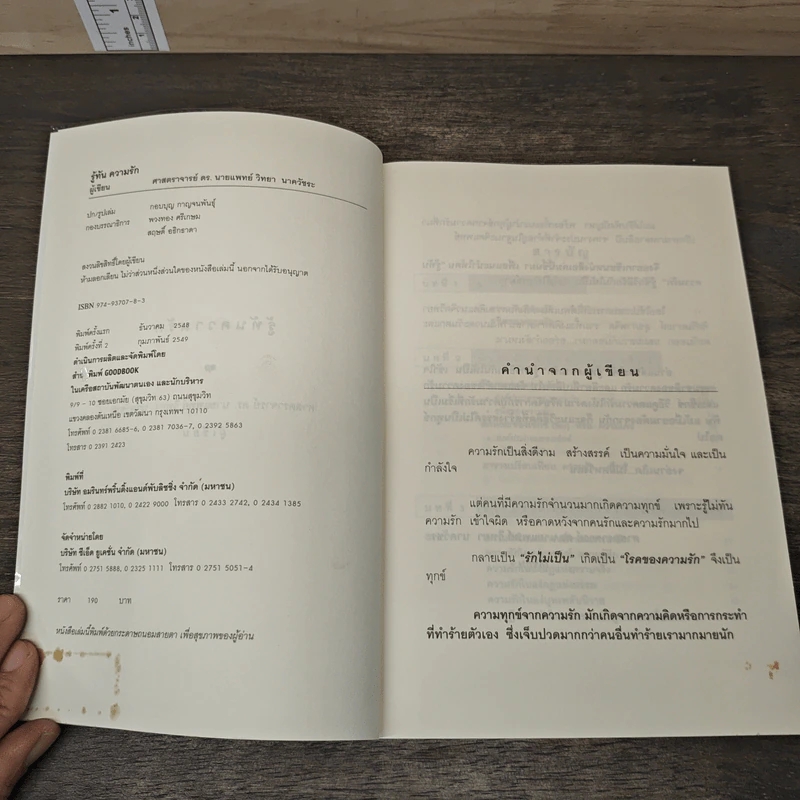 inches
1
รู้ทัน ความรัก
ผู้เขียน ศาสตราจารย์ ดร. นายแพทย์ วิทยา นาควัชระ
ปก/รูปเล่ม กอบบุญ กาญจนพันธุ์
กองบรรณาธิการ พวงทอง ศรีเกษม
สฤษดิ์ อธิกธาดา
สงวนลิขสิทธิ์โดยผู้เขียน
ห้ามลอกเลียน ไม่ว่าส่วนหนึ่งส่วนใดของหนังสือเล่มนี้ นอกจากได้รับอนุญาต
ISBN 974-93707-8-3
พิมพ์ครั้งแรก ธันวาคม 2548
พิมพ์ครั้งที่ 2 กุมภาพันธ์ 2549
ดำเนินการผลิตและจัดพิมพ์โดย
พิมพ์ GOODBOOK
ในเครือสถาบันพัฒนาตนเอง และนักบริหาร
9/9 - 10 ซอยเอกมัย (สุขุมวิท 63) ถนนสุขุมวิท
แขวงคลองตันเหนือ เขตวัฒนา กรุงเทพฯ 10110
โทรศัพท์ 0 2381 6685-6, 0 2381 7036-7, 0 2392 5863
โทรสาร 0 2391 2423
พิมพ์ที่
บริษัท อมรินทร์พริ้นติ้งแอนด์พับลิชชิ่ง จำกัด (มหาชน)
โทรศัพท์ 0 2882 1010, 0 2422 9000 โทรสาร 0 2433 2742, 0 2434 1385
จัดจำหน่ายโดย
บริษัท ซีเอ็ด ยูเคชั่น จำกัด (มหาชน)
โทรศัพท์ 0 2751 5888, 0 2325 1111 โทรสาร 0 2751 5051-4
ราคา 190 บาท
หนังสือเล่มนี้พิมพ์ด้วยกระดาษถนอมสายตา เพื่อสุขภาพของผู้อ่าน
คำนำจากผู้เขียน
ความรักเป็นสิ่งดีงาม สร้างสรรค์ เป็นความมั่นใจ และเป็น
กำลังใจ
แต่คนที่มีความรักจำนวนมากเกิดความทุกข์ เพราะรู้ไม่ทัน
ความรัก เข้าใจผิด หรือคาดหวังจากคนรักและความรักมากไป
กลายเป็น “รักไม่เป็น” เกิดเป็น “โรคของความรัก” จึงเป็น
ทุกข์
ความทุกข์จากความรัก มักเกิดจากความคิดหรือการกระทำ
ที่ทำร้ายตัวเอง ซึ่งเจ็บปวดมากกว่าคนอื่นทำร้ายเรามากมายนัก